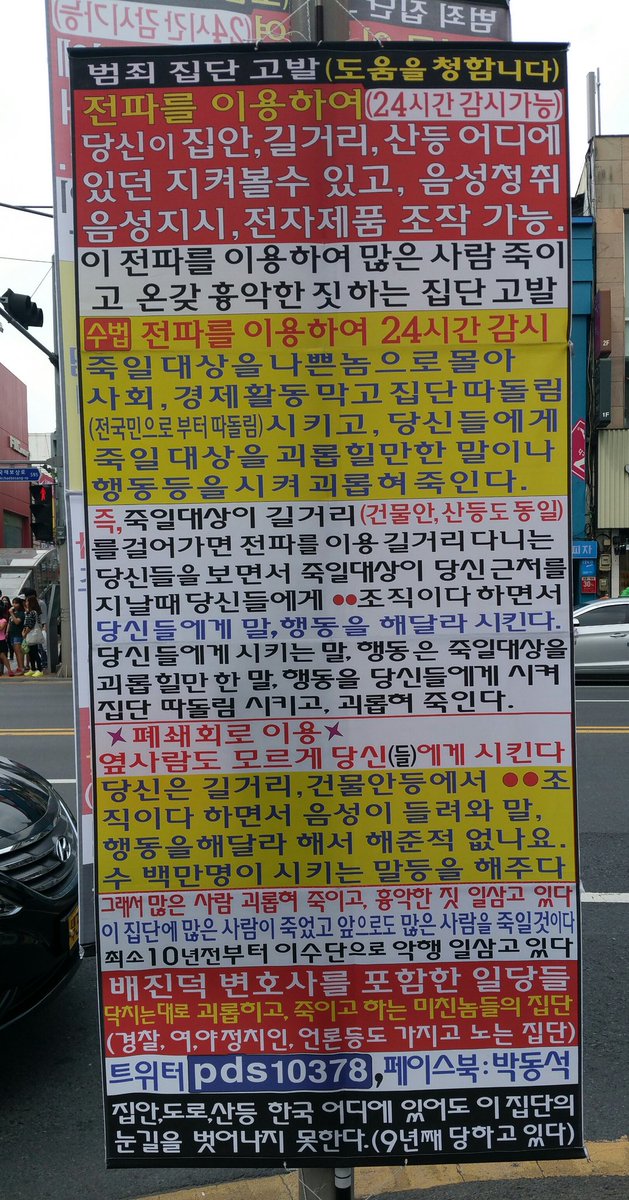 범죄 집단 고발 (도움을 청합니다)
전파를 이용하여(24시간 감시가능)
당신이 집안,길거리, 산등 어디에
있던 지켜볼수 있고, 음성청취
음성지시,전자제품 조작 가능.
이 전파를 이용하여 많은 사람 죽이
고 온갖 흉악한 짓 하는 집단 고발
수법 전파를 이용하여 24시간 감시
죽일 대상을 나쁜놈으로 몰아
사회, 경제활동 막고 집단 따돌림
(전국민으로 부터 따돌림) 시키고, 당신들에게
죽일 대상을 괴롭힐만한 말이나
행동등을 시켜 괴롭혀 죽인다.
즉,죽일대상이 길거리 (건물안, 산등도 동일)
를걸어가면 전파를 이용 길거리 다니는
당신들을 보면서 죽일대상이 당신 근처를
지날때 당신들에게 ●●조직이다 하면서
당신들에게 말,행동을 해달라 시킨다.
당신들에게 시키는 말, 행동은 죽일대상을
괴롭힐만 한 말, 행동을 당신들에게 시켜
집단 따돌림 시키고, 괴롭혀 죽인다.
폐쇄회로 이용
옆사람도 모르게 당신(들)에게 시킨다
당신은 길거리,건물안등에서 ●●조
직이다 하면서 음성이 들려와 말,
행동을해달라 해서 해준적 없나요.
수 백만명이 시키는 말등을 해주다
그래서 많은 사람 괴롭혀 죽이고, 흉악한 짓 일삼고 있다
이 집단에 많은 사람이 죽었고 앞으로도 많은 사람을 죽일것이다
최소10년전부터 이수단으로 악행 일삼고 있다
배진덕 변호사를 포함한 일당들
닥치는대로 괴롭히고, 죽이고 하는 미친놈들의 집단
(경찰, 여야정치인, 언론등도 가지고 노는 집단)
트위터 pds10378,페이스북:박동석
집안,도로,산등 한국 어디에 있어도 이 집단의
눈길을 벗어나지 못한다.(9년째 당하고 있다)